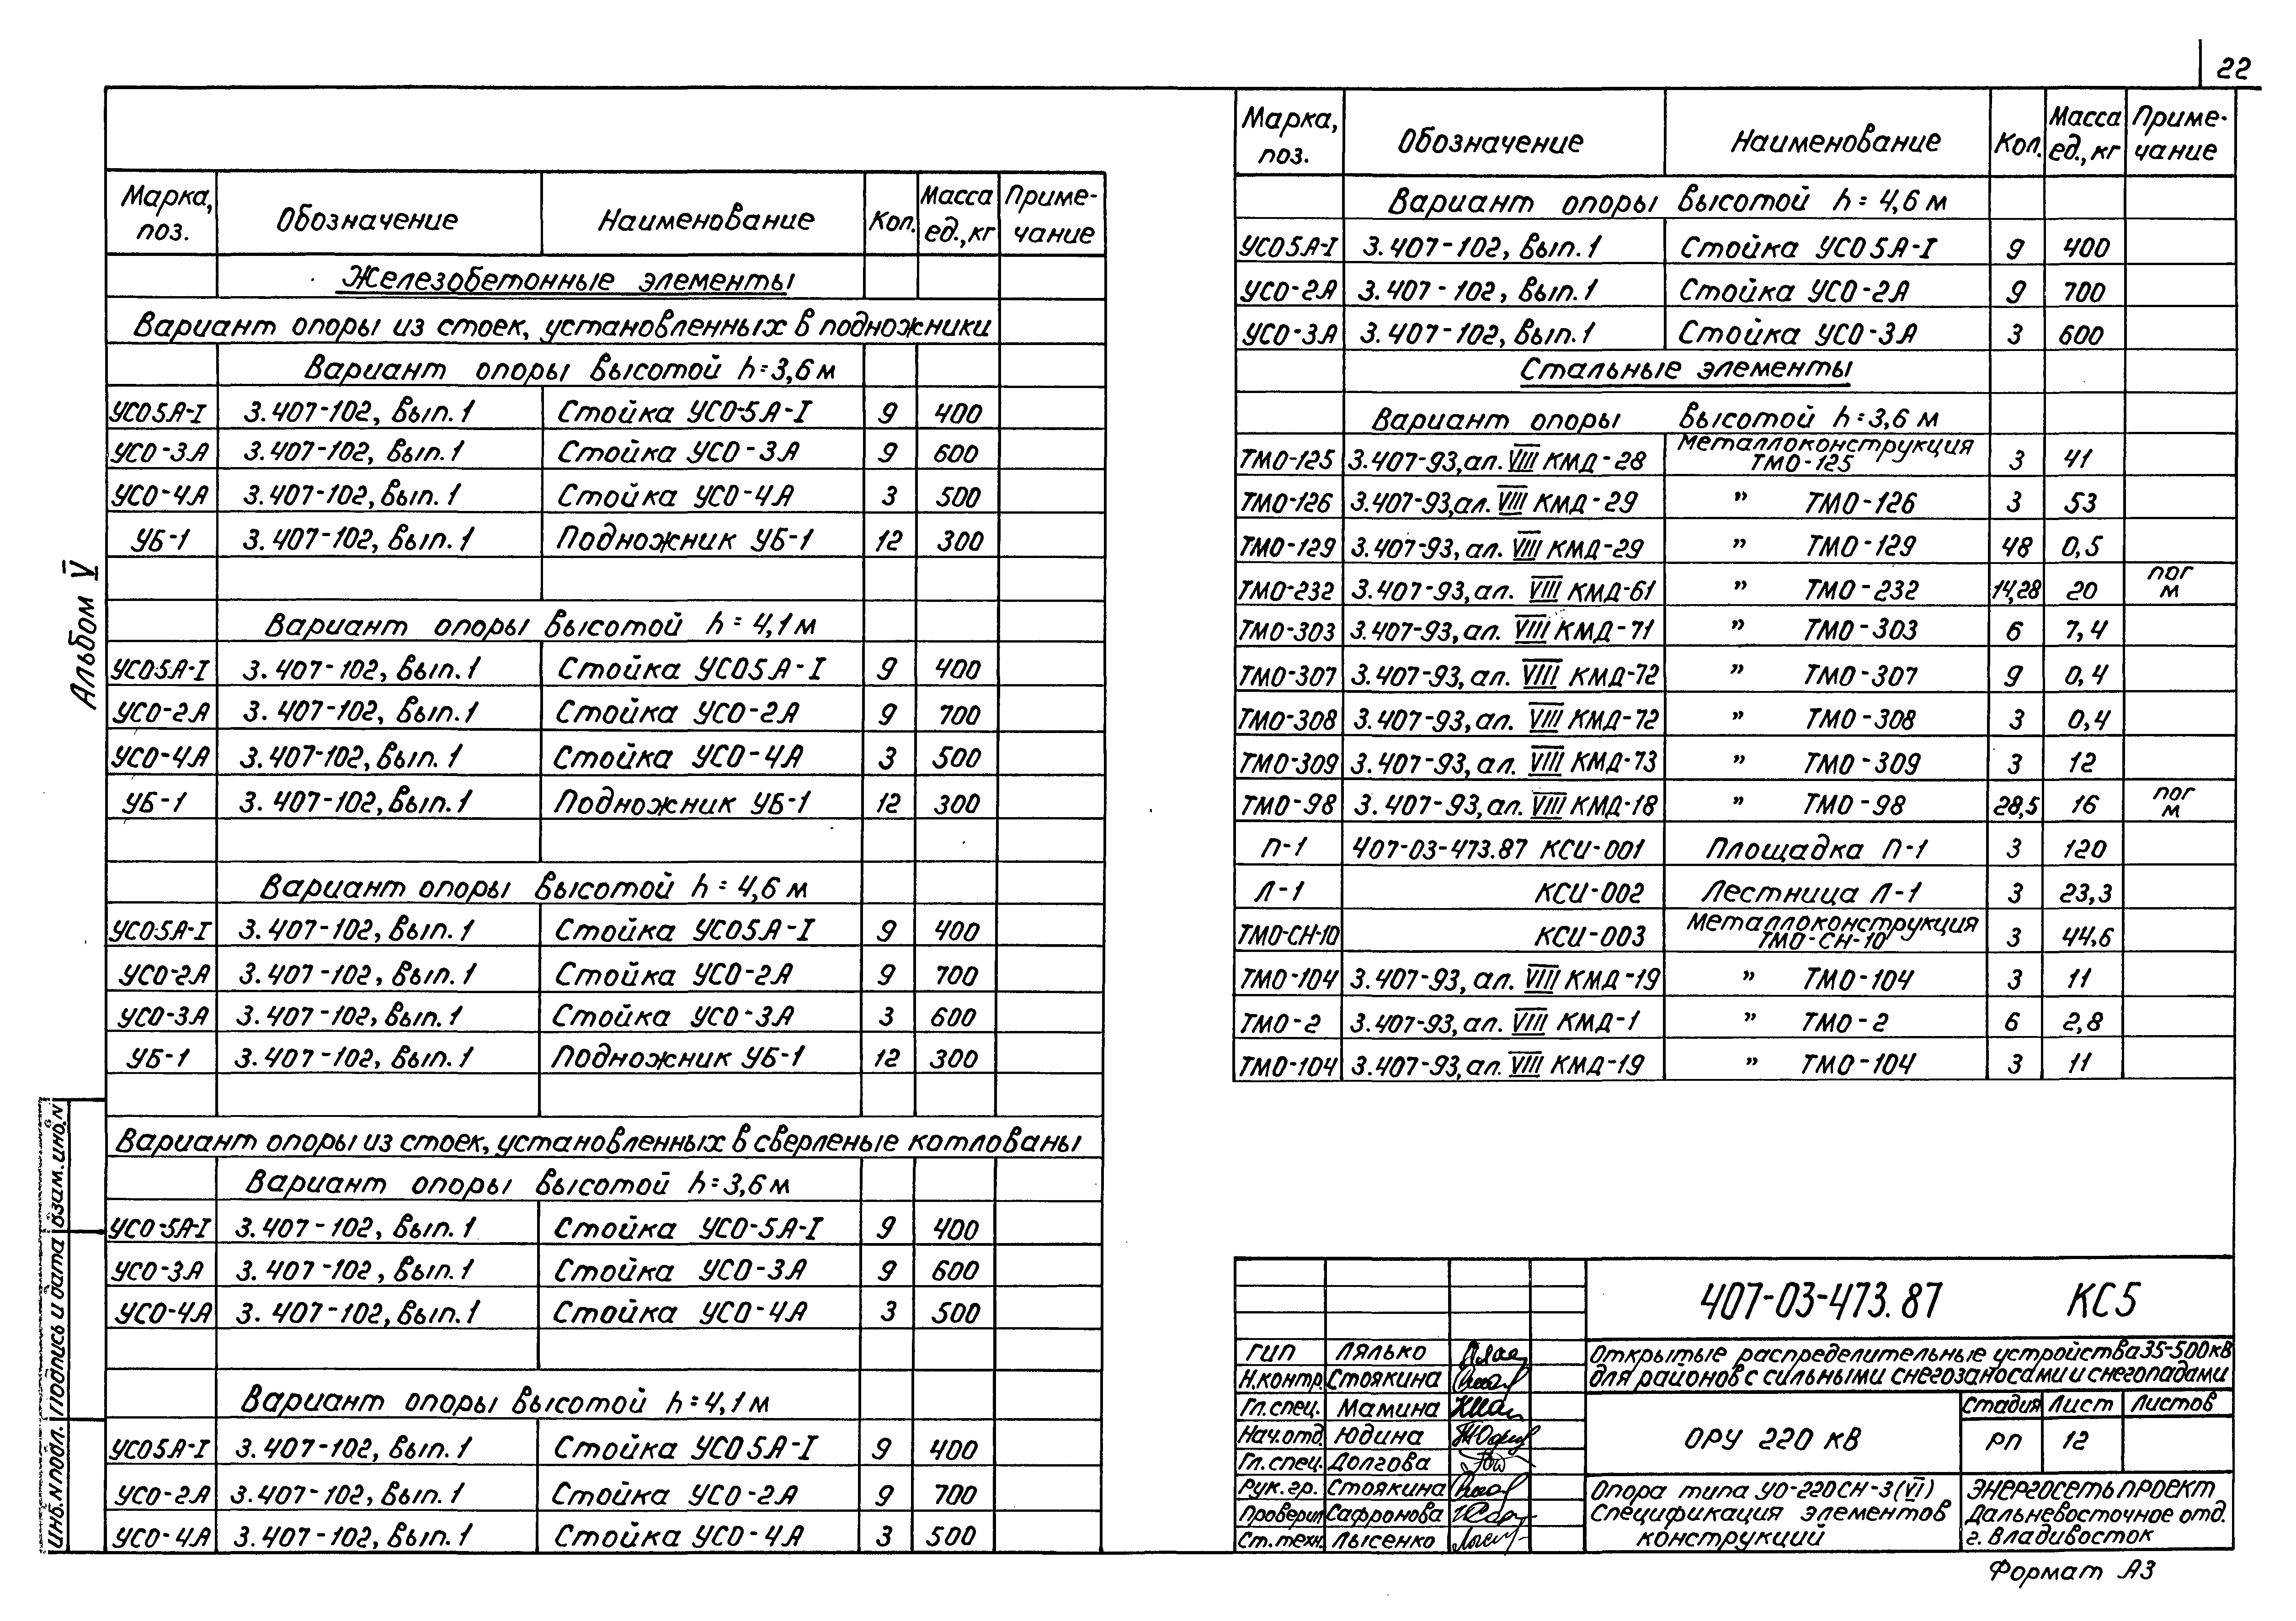 22
Альбом V
Марка, поз. Обозначение Наименование Кол. Масса ед., кг Приме-чание
Железобетонные элементы
Вариант опоры из стоек, установленных в подножники
Вариант опоры высотой h=3,6 м
УСО5А-I 3.407-102, вып.1 Стойка УСО-5А-I 9 400
УСО-3А 3.407-102, вып.1 Стойка УСО-3А 9 600
УСО-4А 3.407-102, вып.1 Стойка УСО-4А 3 500
УБ-1 3.407-102, вып.1 Подножник УБ-1 12 300
Вариант опоры высотой h=4,1 м
УСО5А-I 3.407-102, вып.1 Стойка УСО5А-I 9 400
УСО-2А 3.407-102, вып.1 Стойка УСО-2А 9 700
УСО-4А 3.407-102, вып.1 Стойка УСО-4А 3 500
УБ-1 3.407-102, вып.1 Подножник УБ-1 12 300
Вариант опоры высотой h=4,6 м
УСО5А-I 3.407-102, вып.1 Стойка УСО5А-I 9 400
УСО-2А 3.407-102, вып.1 Стойка УСО-2А 9 700
УСО-3А 3.407-102, вып.1 Стойка УСО-3А 3 600
УБ-1 3.407-102, вып.1 Подножник УБ-1 12 300
Вариант опоры из стоек, установленных в сверленые котлованы
Вариант опоры высотой h=3,6 м
УСО-5А-I 3.407-102, вып.1 Стойка УСО-5А-I 9 400
УСО-3А 3.407-102, вып.1 Стойка УСО-3А 9 600
УСО-4А 3.407-102, вып.1 Стойка УСО-4А 3 500
Вариант опоры высотой h=4,1 м
УСО5А-I 3.407-102, вып.1 Стойка УСО5А-I 9 400
УСО-2А 3.407-102, вып.1 Стойка УСО-2А 9 700
УСО-4А 3.407-102, вып.1 Стойка УСО-4А 3 500
Марка, поз. Обозначение Наименование Кол. Масса ед., кг Приме-чание
Вариант опоры высотой h=4,6 м
УСО5А-I 3.407-102, вып.1 Стойка УСО5А-I 9 400
УСО-2А 3.407-102, вып.1 Стойка УСО-2А 9 700
УСО-3А 3.407-102, вып.1 Стойка УСО-3А 3 600
Стальные элементы
Вариант опоры высотой h=3,6 м
ТМО-125 3.407-93, ал. VIII КМД-28 Металлоконструкция ТМО-125 3 41
ТМО-126 3.407-93, ал. VIII КМД-29 " ТМО-126 3 53
ТМО-129 3.407-93, ал. VIII КМД-29 " ТМО-129 48 0,5
ТМО-232 3.407-93, ал. VIII КМД-61 " ТМО-232 14,28 20 пог м
ТМО-303 3.407-93, ал. VIII КМД-71 " ТМО-303 6 7,4
ТМО-307 3.407-93, ал. VIII КМД-72 " ТМО-307 9 0,4
ТМО-308 3.407-93, ал. VIII КМД-72 " ТМО-308 3 0,4
ТМО-309 3.407-93, ал. VIII КМД-73 " ТМО-309 3 12
ТМО-98 3.407-93, ал. VIII КМД-18 " ТМО-98 28,5 16 пог м
П-1 407-03-473.87 КСИ-001 Площадка П-1 3 120
Л-1 КСИ-002 Лестница Л-1 3 23,3
ТМО-СН-10 КСИ-003 Металлоконструкция ТМО-СН-10 3 44,6
ТМО-104 3.407-93, ал. VIII КМД-19 " ТМО-104 3 11
ТМО-2 3.407-93, ал. VIII КМД-1 " ТМО-2 6 2,8
ТМО-104 3.407-93, ал. VIII КМД-19 " ТМО-104 3 11
Инв.N подл. Подпись и дата Взам.инв.N
407-03-473.87 КС5
ГИП Лялько
Н.контр. Стоякина
Гл.спец. Мамина
Нач.отд. Юдина
Гл.спец. Долгова
Рук.гр. Стоякина
Проверил Сафронова
Ст.техн. Лысенко
Открытые распределительные устройства 35-500 кВ
для районов с сильными снегозаносами и снегопадами
ОРУ 220 кВ
Стадия Лист Листов
РП 12
Опора типа УО-220СН-3(VI)
Спецификация элементов
конструкций
ЭНЕРГОСЕТЬПРОЕКТ
Дальневосточное отд.
г. Владивосток
Формат А3